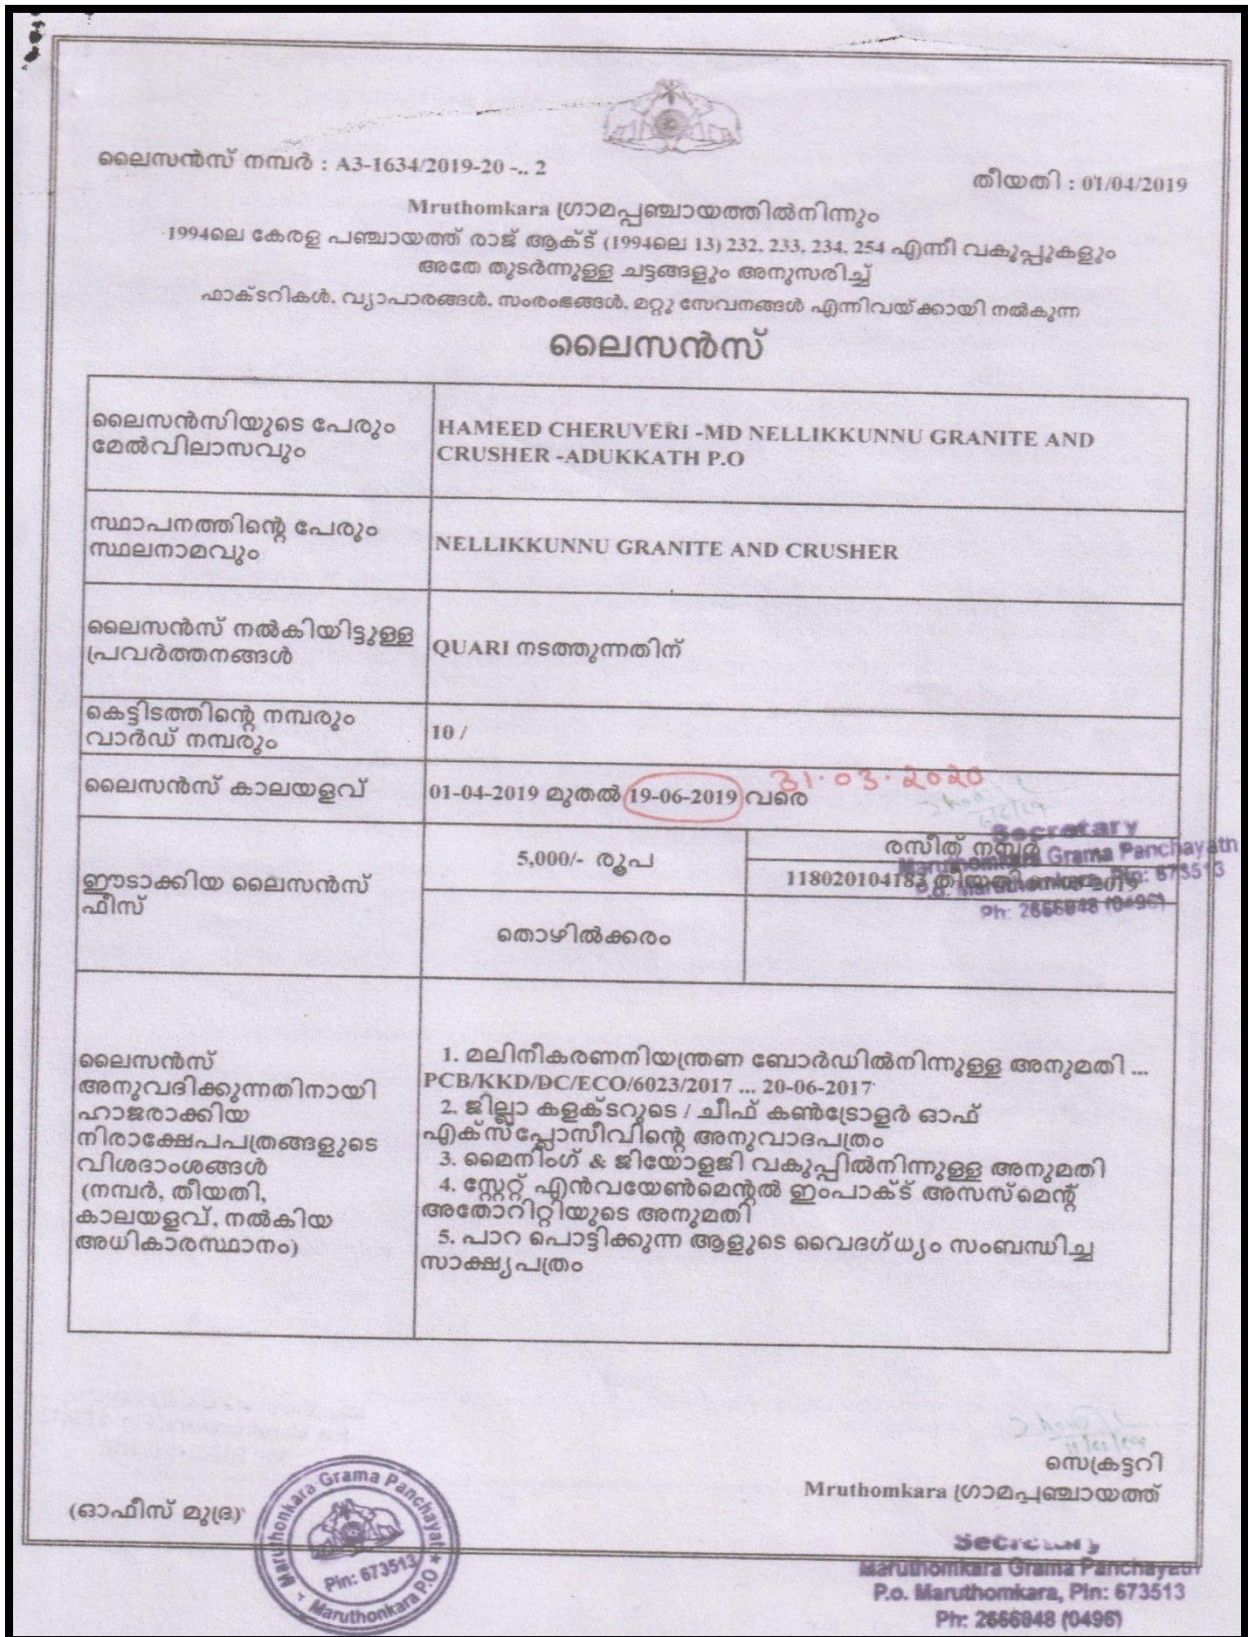 ലൈസൻസ് നമ്പർ : A3-1634/2019-20 -.. 2
തീയതി : 01/04/2019
Mruthomkara ഗ്രാമപ്പഞ്ചായത്തിൽനിന്നും
1994ലെ കേരള പഞ്ചായത്ത് രാജ് ആക്ട് (1994ലെ 13) 232, 233, 234, 254 എന്നീ വകുപ്പുകളും
അതേ തുടർന്നുള്ള ചട്ടങ്ങളും അനുസരിച്ച്
ഫാക്ടറികൾ, വ്യാപാരങ്ങൾ, സംരംഭങ്ങൾ, മറ്റു സേവനങ്ങൾ എന്നിവയ്ക്കായി നൽകുന്ന
ലൈസൻസ്
ലൈസൻസിയുടെ പേരും
മേൽവിലാസവും
HAMEED CHERUVERI -MD NELLIKKUNNU GRANITE AND
CRUSHER -ADUKKATH P.O
സ്ഥാപനത്തിന്റെ പേരും
സ്ഥലനാമവും
NELLIKKUNNU GRANITE AND CRUSHER
ലൈസൻസ് നൽകിയിട്ടുള്ള
പ്രവർത്തനങ്ങൾ
QUARI നടത്തുന്നതിന്
കെട്ടിടത്തിന്റെ നമ്പരും
വാർഡ് നമ്പരും
10 /
ലൈസൻസ് കാലയളവ്
01-04-2019 മുതൽ 19-06-2019 വരെ
31.03.2020
Secretary
Maruthomkara Grama Panchayath
P.o. Maruthomkara, Pin: 673513
Ph: 2666848 (0496)
ഈടാക്കിയ ലൈസൻസ്
ഫീസ്
5,000/- രൂപ
രസീത് നമ്പർ
118020104183 തീയതി
തൊഴിൽക്കരം
ലൈസൻസ്
അനുവദിക്കുന്നതിനായി
ഹാജരാക്കിയ
നിരാക്ഷേപപത്രങ്ങളുടെ
വിശദാംശങ്ങൾ
(നമ്പർ, തീയതി,
കാലയളവ്, നൽകിയ
അധികാരസ്ഥാനം)
1. മലിനീകരണനിയന്ത്രണ ബോർഡിൽനിന്നുള്ള അനുമതി ...
PCB/KKD/DC/ECO/6023/2017 ... 20-06-2017
2. ജില്ലാ കളക്ടറുടെ / ചീഫ് കൺട്രോളർ ഓഫ്
എക്സ്പ്ലോസീവിന്റെ അനുവാദപത്രം
3. മൈനിംഗ് & ജിയോളജി വകുപ്പിൽനിന്നുള്ള അനുമതി
4. സ്റ്റേറ്റ് എൻവയേൺമെന്റൽ ഇംപാക്ട് അസസ്മെന്റ്
അതോറിറ്റിയുടെ അനുമതി
5. പാറ പൊട്ടിക്കുന്ന ആളുടെ വൈദഗ്ധ്യം സംബന്ധിച്ച
സാക്ഷ്യപത്രം
സെക്രട്ടറി
Mruthomkara ഗ്രാമപ്പഞ്ചായത്ത്
(ഓഫീസ് മുദ്ര)
Maruthonkara Grama Panchayat
Pin: 673513
Maruthonkara P.O
Secretary
Maruthomkara Grama Panchayath
P.o. Maruthomkara, Pin: 673513
Ph: 2666848 (0496)